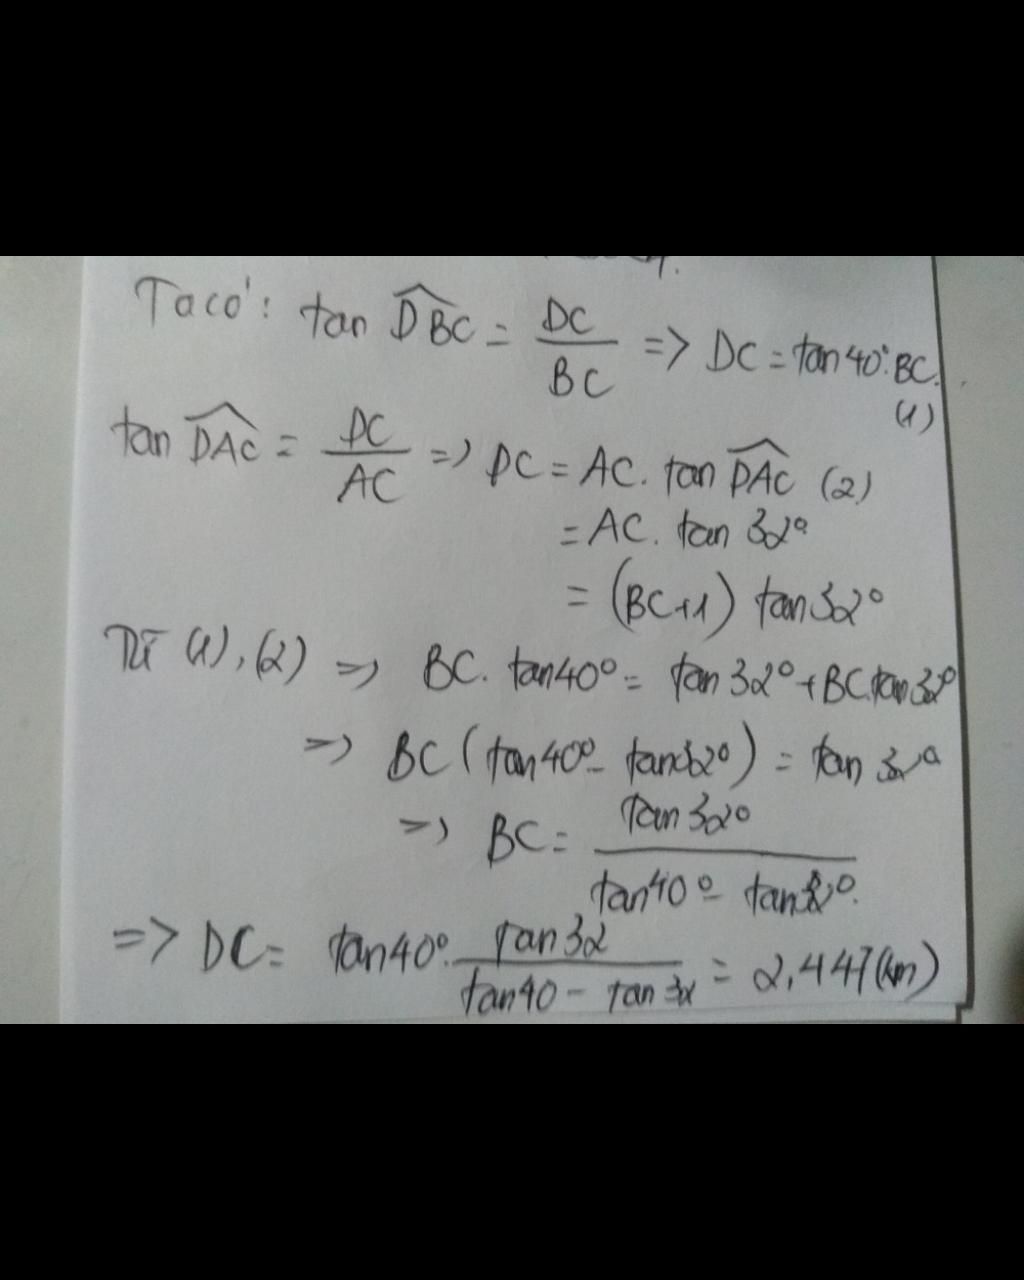 Ta có: tan DBC = DC / BC => DC = tan 40°. BC. (1)
tan DAC = DC / AC => DC = AC. tan DAC (2)
= AC. tan 32°
= (BC+1) tan 32°
Từ (1), (2) => BC. tan 40° = tan 32° + BC. tan 32°
=> BC (tan 40° - tan 32°) = tan 32°
=> BC = tan 32° / tan 40° - tan 32°.
=> DC = tan 40°. tan 32 / tan 40 - tan 32 = 2,447 (km)